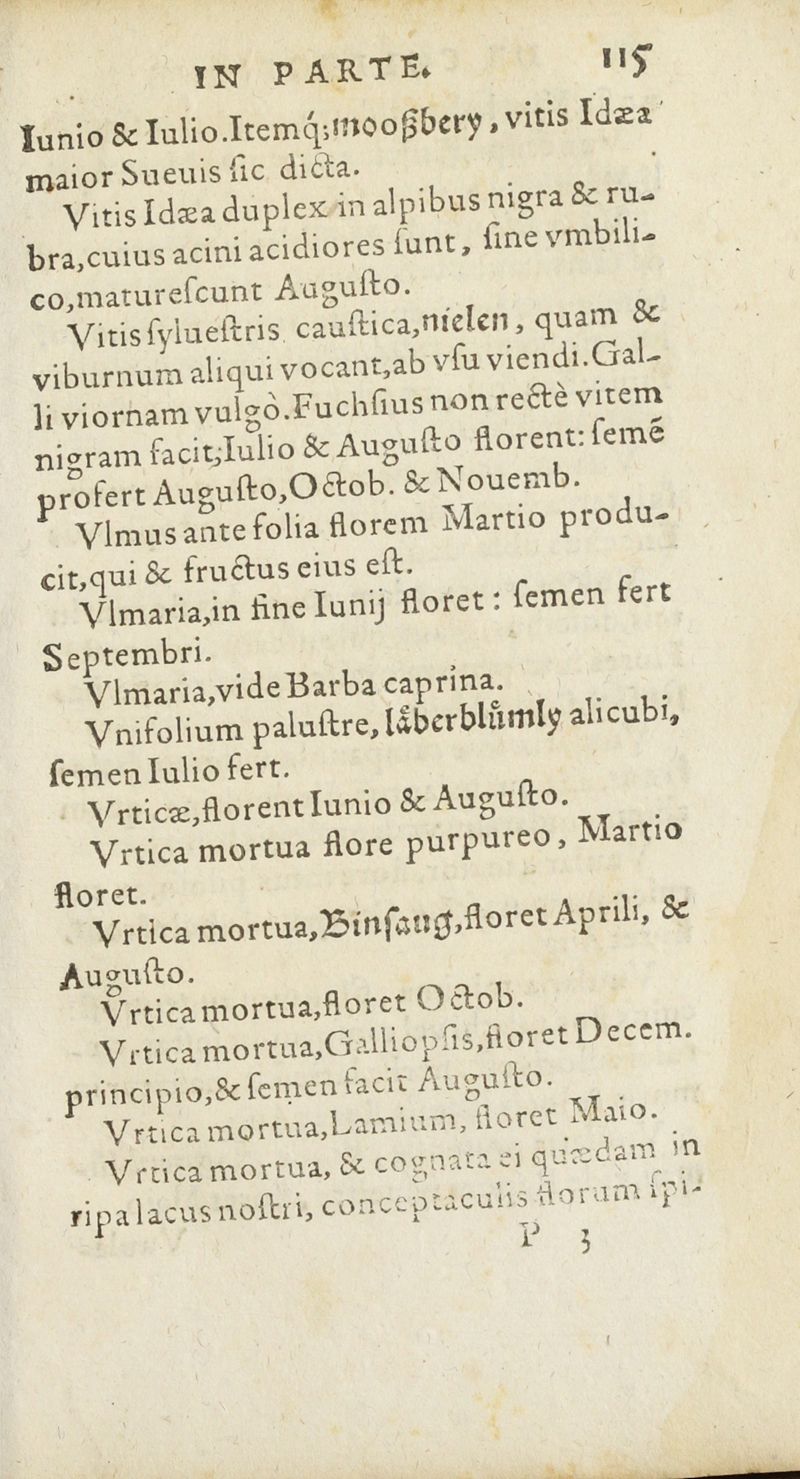 IN PARTE. 115
Iunio & Iulio. Itemq́;mooßbery, vitis Idæa
maior Sueuis ſic dicta.
Vitis Idæa duplex in alpibus nigra & ru-
bra,cuius acini acidiores ſunt, ſine vmbili-
co,matureſcunt Auguſto.
Vitis ſylueſtris cauſtica,nielen, quam &
viburnum aliqui vocant,ab vſu viendi.Gal-
li viornam vulgò.Fuchſius non rectè vitem
nigram facit;Iulio & Auguſto florent: ſemē
profert Auguſto,Octob. & Nouemb.
Vlmus ante folia florem Martio produ-
cit,qui & fructus eius eſt.
Vlmaria,in fine Iunij floret: ſemen fert
Septembri.
Vlmaria,vide Barba caprina.
Vnifolium paluſtre, låberblůmly alicubi,
ſemen Iulio fert.
Vrticæ,florent Iunio & Auguſto.
Vrtica mortua flore purpureo, Martio
floret.
Vrtica mortua,Binſaug,floret Aprili, &
Auguſto.
Vrtica mortua,floret Octob.
Vrtica mortua,Galliopſis,floret Decem.
principio,& ſemen facit Auguſto.
Vrtica mortua,Lamium, floret Maio.
Vrtica mortua, & cognata ei quædam in
ripa lacus noſtri, conceptaculis florum ipi-
P 3